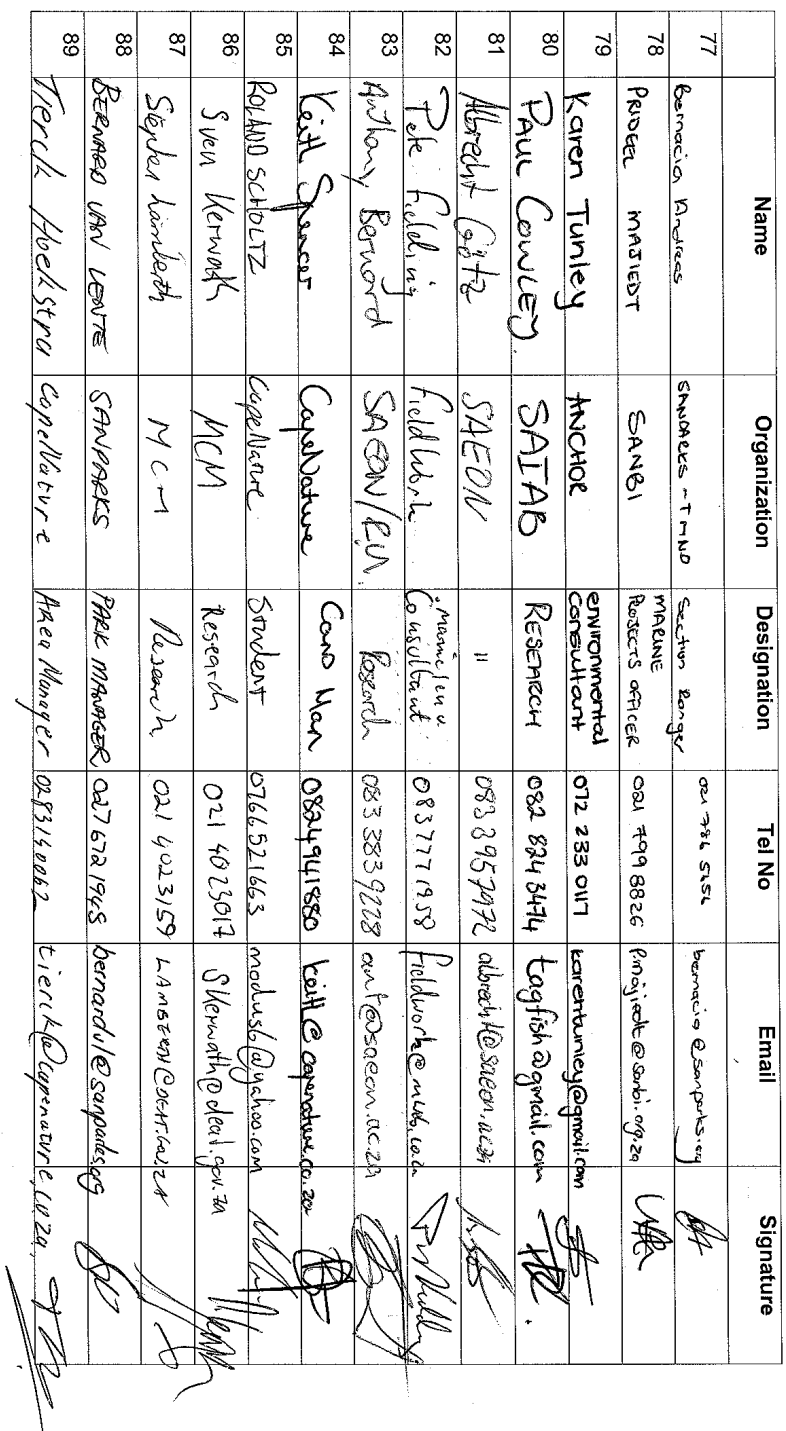 Name Organization Designation Tel No Email Signature
77 Bernacia Andreas SANPARKS - TMNP Section Ranger 021 786 5656 bernacia@sanparks.org
78 PRIDEEL MAJIEDT SANBI MARINE PROJECTS OFFICER 021 799 8826 p.majiedt@sanbi.org.za
79 Karen Tunley ANCHOR environmental consultant 072 233 0117 karentunley@gmail.com
80 PAUL COWLEY. SAIAB RESEARCH 082 824 3474 tagfish@gmail.com
81 Albrecht Götz SAEON " 083 2957972 albrecht@saeon.ac.za
82 Pete Fielding Fieldwork Consultant 0837771358 fieldwork@mweb.co.za
83 Anthony Bernard SAEON/RU. Research 083 3839228 ant@saeon.ac.za
84 Keith Spencer CapeNature Cons Man 0824941880 keith@capenature.co.za
85 ROLAND SCHOLTZ CapeNature Student 0766521663 modus6@yahoo.com
86 Sven Kerwath MCM Research 021 4023017 SKerwath@deat.gov.za
87 Stephen Lamberth MCM Research 021 4023159 LAMBERTH@DEAT.GOV.ZA
88 BERNARD VAN LENTE SANPARKS PARK MANAGER 0276721948 bernardvl@sanparks.org
89 Tierck Hoekstra CapeNature Area Manager 0283140062 tierck@capenature.co.za.